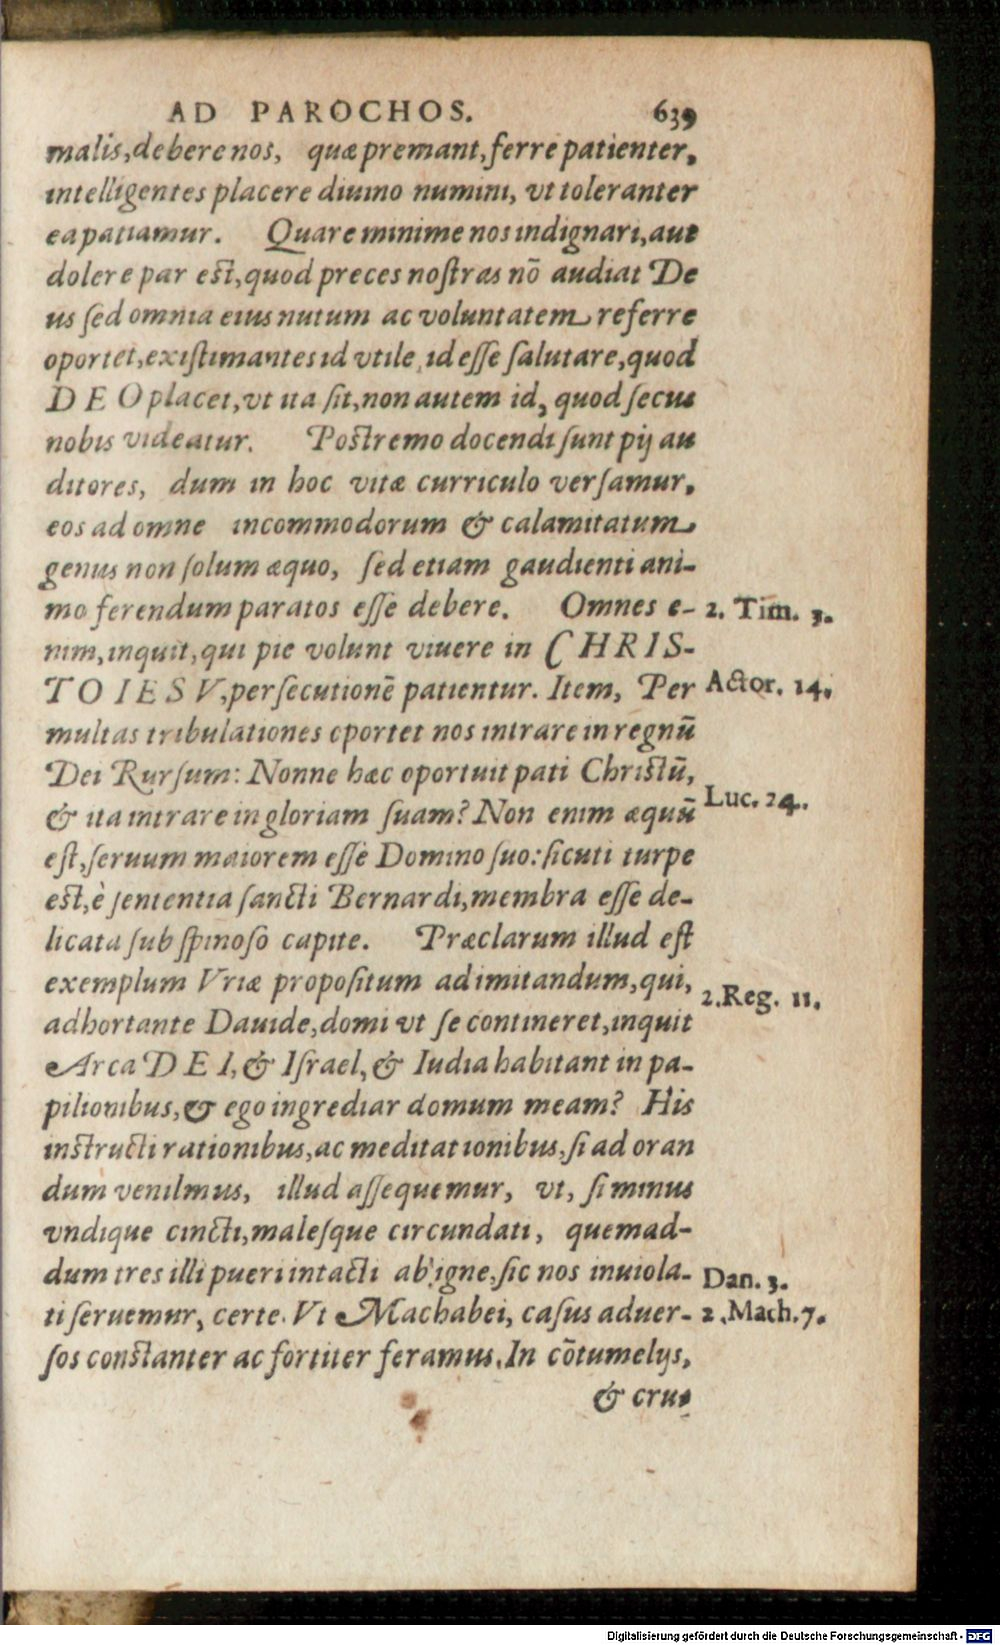 AD PAROCHOS. 639
malis, debere nos, quæ premant, ferre patienter,
intelligentes placere diuino numini, vt toleranter
ea patiamur. Quare minime nos indignari, aut
dolere par est, quod preces nostras nõ audiat De
us sed omnia eius nutum ac voluntatem referre
oportet, existimantes id vtile, id esse salutare, quod
DEO placet, vt ita sit, non autem id, quod secus
nobis videatur. Postremo docendi sunt pij au
ditores, dum in hoc vitæ curriculo versamur,
eos ad omne incommodorum & calamitatum
genus non solum æquo, sed etiam gaudienti ani-
mo ferendum paratos esse debere. Omnes e- 2. Tim. 3.
nim, inquit, qui pie volunt viuere in CHRIS-
TO IESV, persecutionẽ patientur. Item, Per Actor. 14.
multas tribulationes oportet nos intrare in regnũ
Dei Rursum: Nonne hæc oportuit pati Christũ,
& ita intrare in gloriam suam? Non enim æquũ Luc. 24.
est, seruum maiorem esse Domino suo: sicuti turpe
est, è sententia sancti Bernardi, membra esse de-
licata sub spinoso capite. Præclarum illud est
exemplum Vriæ propositum ad imitandum, qui, 2. Reg. 11.
adhortante Dauide, domi vt se contineret, inquit
Arca DEI, & Israel, & Iudia habitant in pa-
pilionibus, & ego ingrediar domum meam? His
instructi rationibus, ac meditationibus, si ad oran
dum venilmus, illud assequemur, vt, si minus
vndique cincti, malesque circundati, quemad-
dum tres illi pueri intacti ab igne, sic nos inuiola- Dan. 3.
ti seruemur, certe. Vt Machabei, casus aduer- 2. Mach. 7.
sos constanter ac fortiter feramus. In cõtumelijs,
& cru-
Digitalisierung gefördert durch die Deutsche Forschungsgemeinschaft - DFG